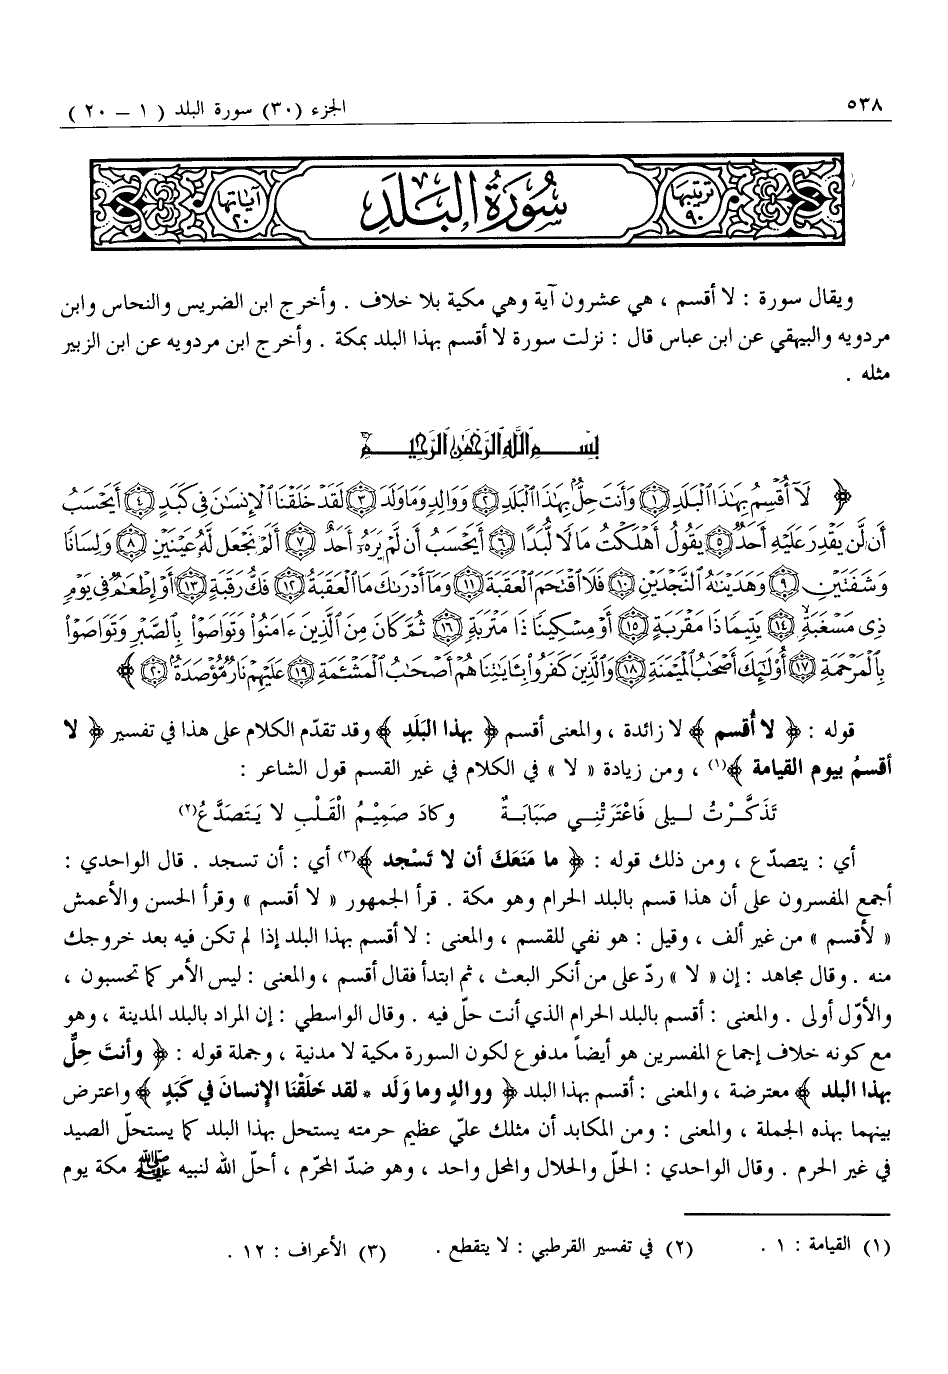 ٥٣٨
الجزء (٣٠) سورة البلد ( ١ – ٢٠ )
ترتيبها ٩٠
سُورَةُ البَلَدِ
آياتها ٢٠
ويقال سورة : لا أقسم ، هي عشرون آية وهي مكية بلا خلاف . وأخرج ابن الضريس والنحاس وابن
مردويه والبيهقي عن ابن عباس قال : نزلت سورة لا أقسم بهذا البلد بمكة . وأخرج ابن مردويه عن ابن الزبير
مثله .
بِسْمِ اللَّهِ الرَّحْمَٰنِ الرَّحِيمِ
﴿ لَآ أُقْسِمُ بِهَٰذَا ٱلْبَلَدِ ۝١ وَأَنتَ حِلٌّۢ بِهَٰذَا ٱلْبَلَدِ ۝٢ وَوَالِدٍ وَمَا وَلَدَ ۝٣ لَقَدْ خَلَقْنَا ٱلْإِنسَٰنَ فِى كَبَدٍ ۝٤ أَيَحْسَبُ
أَن لَّن يَقْدِرَ عَلَيْهِ أَحَدٌ ۝٥ يَقُولُ أَهْلَكْتُ مَالًا لُّبَدًا ۝٦ أَيَحْسَبُ أَن لَّمْ يَرَهُۥٓ أَحَدٌ ۝٧ أَلَمْ نَجْعَل لَّهُۥ عَيْنَيْنِ ۝٨ وَلِسَانًا
وَشَفَتَيْنِ ۝٩ وَهَدَيْنَٰهُ ٱلنَّجْدَيْنِ ۝١٠ فَلَا ٱقْتَحَمَ ٱلْعَقَبَةَ ۝١١ وَمَآ أَدْرَىٰكَ مَا ٱلْعَقَبَةُ ۝١٢ فَكُّ رَقَبَةٍ ۝١٣ أَوْ إِطْعَٰمٌ فِى يَوْمٍ
ذِى مَسْغَبَةٍ ۝١٤ يَتِيمًا ذَا مَقْرَبَةٍ ۝١٥ أَوْ مِسْكِينًا ذَا مَتْرَبَةٍ ۝١٦ ثُمَّ كَانَ مِنَ ٱلَّذِينَ ءَامَنُوا۟ وَتَوَاصَوْا۟ بِٱلصَّبْرِ وَتَوَاصَوْا۟
بِٱلْمَرْحَمَةِ ۝١٧ أُو۟لَٰٓئِكَ أَصْحَٰبُ ٱلْمَيْمَنَةِ ۝١٨ وَٱلَّذِينَ كَفَرُوا۟ بِـَٔايَٰتِنَا هُمْ أَصْحَٰبُ ٱلْمَشْـَٔمَةِ ۝١٩ عَلَيْهِمْ نَارٌ مُّؤْصَدَةٌۢ ۝٢٠ ﴾
قوله : ﴿ لا أُقسم ﴾ لا زائدة ، والمعنى أقسم ﴿ بهذا البَلَدِ ﴾ وقد تقدّم الكلام على هذا في تفسير ﴿ لا
أقسمُ بيوم القيامة ﴾(١) ، ومن زيادة « لا » في الكلام في غير القسم قول الشاعر :
تَذَكَّرْتُ لـيلى فَاعْتَرَتْنِـي صَبَابَـةٌ وكادَ صَمِيْـمُ الْقَلْـبِ لا يَـتَصدَّعُ(٢)
أي : يتصدّع ، ومن ذلك قوله : ﴿ ما مَنَعَكَ أن لا تَسْجد ﴾(٣) أي : أن تسجد . قال الواحدي :
أجمع المفسرون على أن هذا قسم بالبلد الحرام وهو مكة . قرأ الجمهور « لا أقسم » وقرأ الحسن والأعمش
« لأقسم » من غير ألف ، وقيل : هو نفي للقسم ، والمعنى : لا أقسم بهذا البلد إذا لم تكن فيه بعد خروجك
منه . وقال مجاهد : إن « لا » ردّ على من أنكر البعث ، ثم ابتدأ فقال أقسم ، والمعنى : ليس الأمر كما تحسبون ،
والأوّل أولى . والمعنى : أقسم بالبلد الحرام الذي أنت حلّ فيه . وقال الواسطي : إن المراد بالبلد المدينة ، وهو
مع كونه خلاف إجماع المفسرين هو أيضاً مدفوع لكون السورة مكية لا مدنية ، وجملة قوله : ﴿ وأنتَ حِلٌّ
بهذا البلد ﴾ معترضة ، والمعنى : أقسم بهذا البلد ﴿ ووالدٍ وما وَلَد * لقد خلَقْنَا الإنسانَ في كَبَدٍ ﴾ واعترض
بينهما بهذه الجملة ، والمعنى : ومن المكابد أن مثلك علىّ عظيم حرمته يستحل بهذا البلد كما يستحلّ الصيد
في غير الحرم . وقال الواحدي : الحلّ والحلال والمحل واحد ، وهو ضدّ المحرّم ، أحلّ الله لنبيه ﷺ مكة يوم
(١) القيامة : ١ . (٢) في تفسير القرطبي : لا يتقطع . (٣) الأعراف : ١٢ .